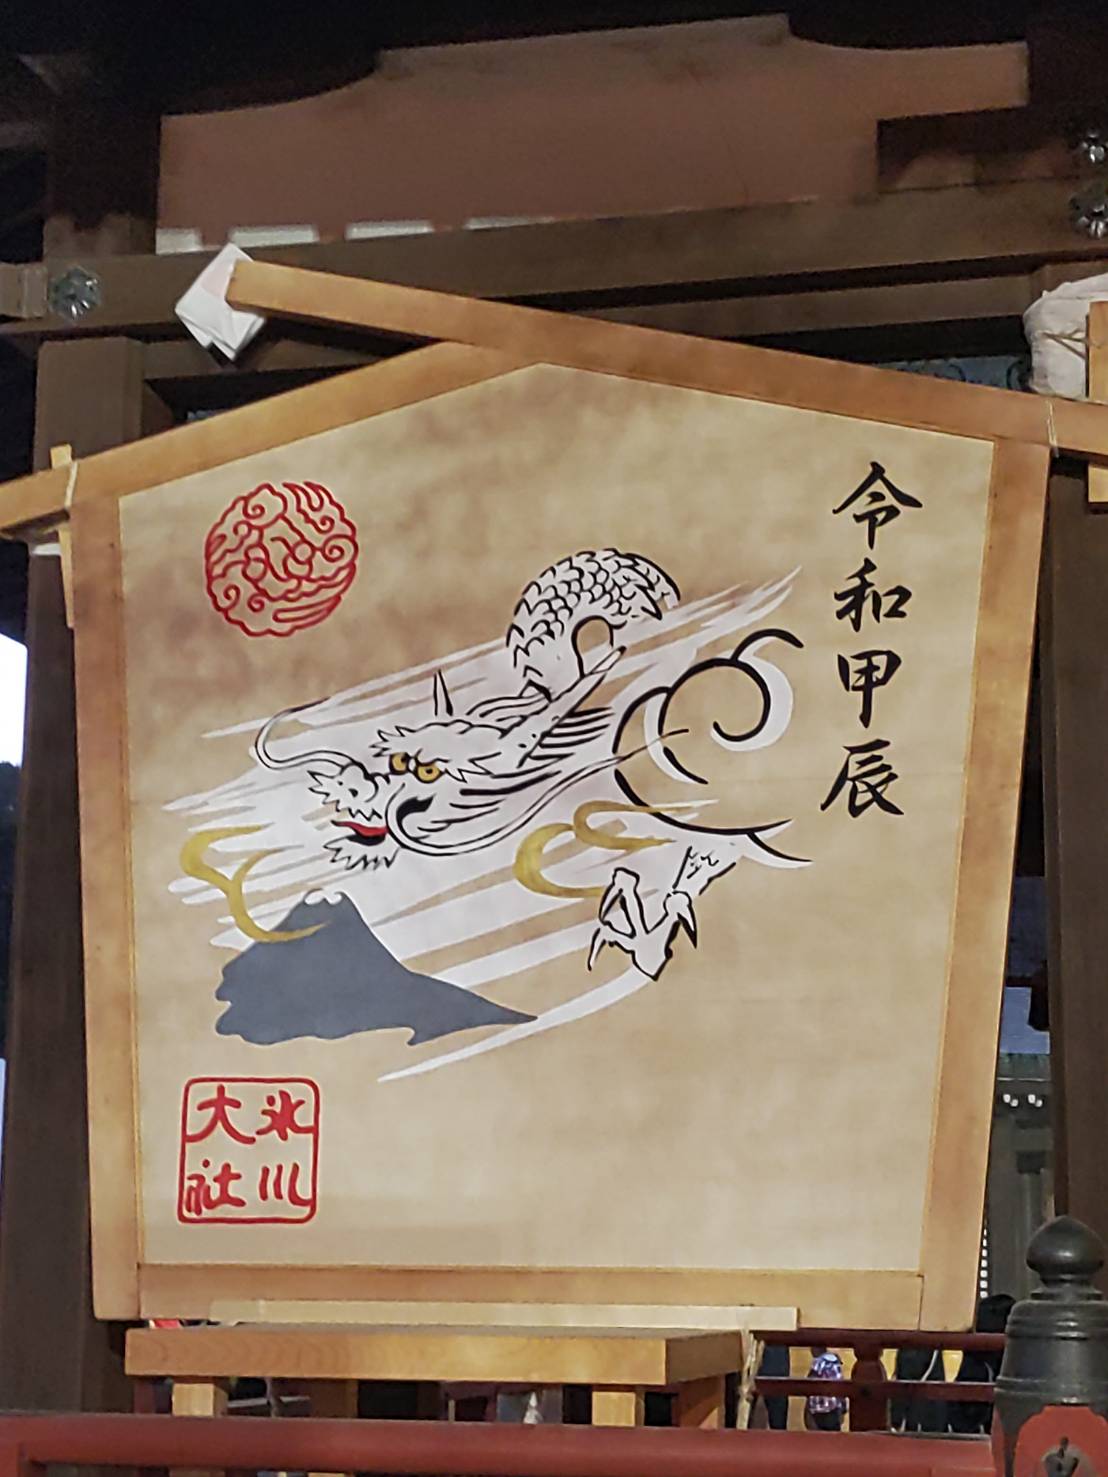 令和甲辰
氷川
大社